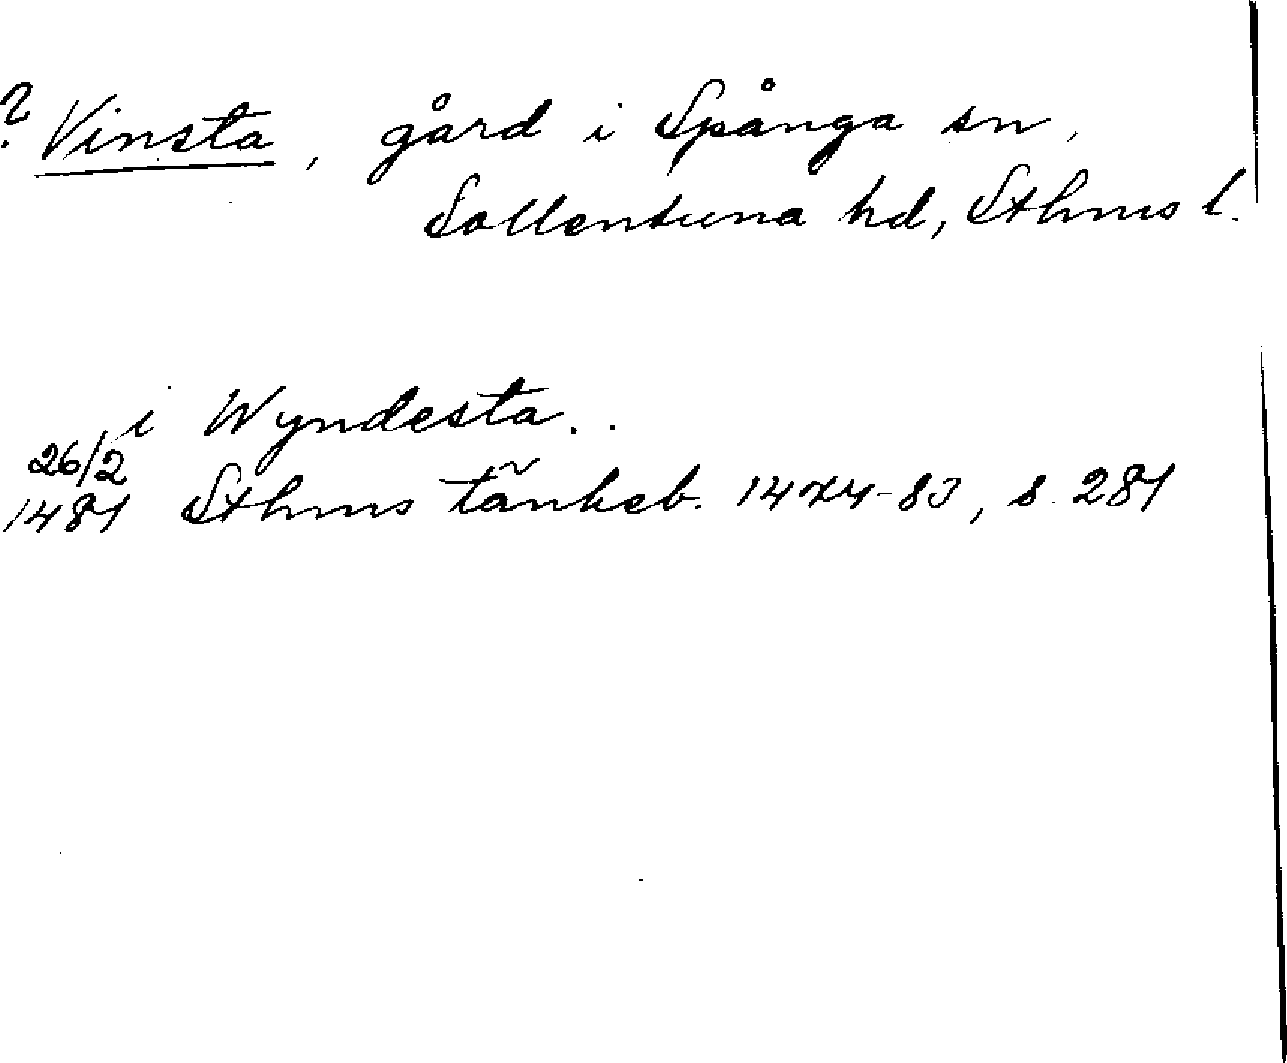 ? Vinsta, gård i Spånga sn,
Sollentuna hd, Sthms l.
i Wyndesta..
26/2
1481 Sthms tänkeb. 1474-83, s. 281